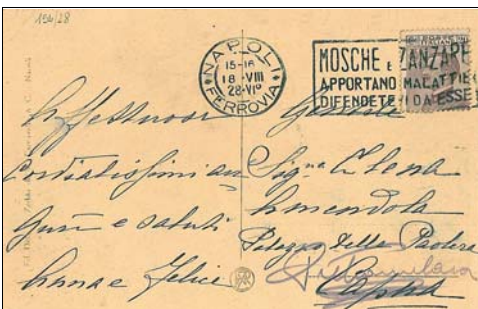 154/28
NAPOLI
15-16
18·VIII
28·VIº
FERROVIA
MOSCHE E ZANZARE
APPORTANO MALATTIE
DIFENDETEVI DA ESSE
Affettuosi
Cordialissimi au
guri e saluti
Anna e Felici
Gentile
Sig.na Elena
Amendola
Palazzo delle
Capua